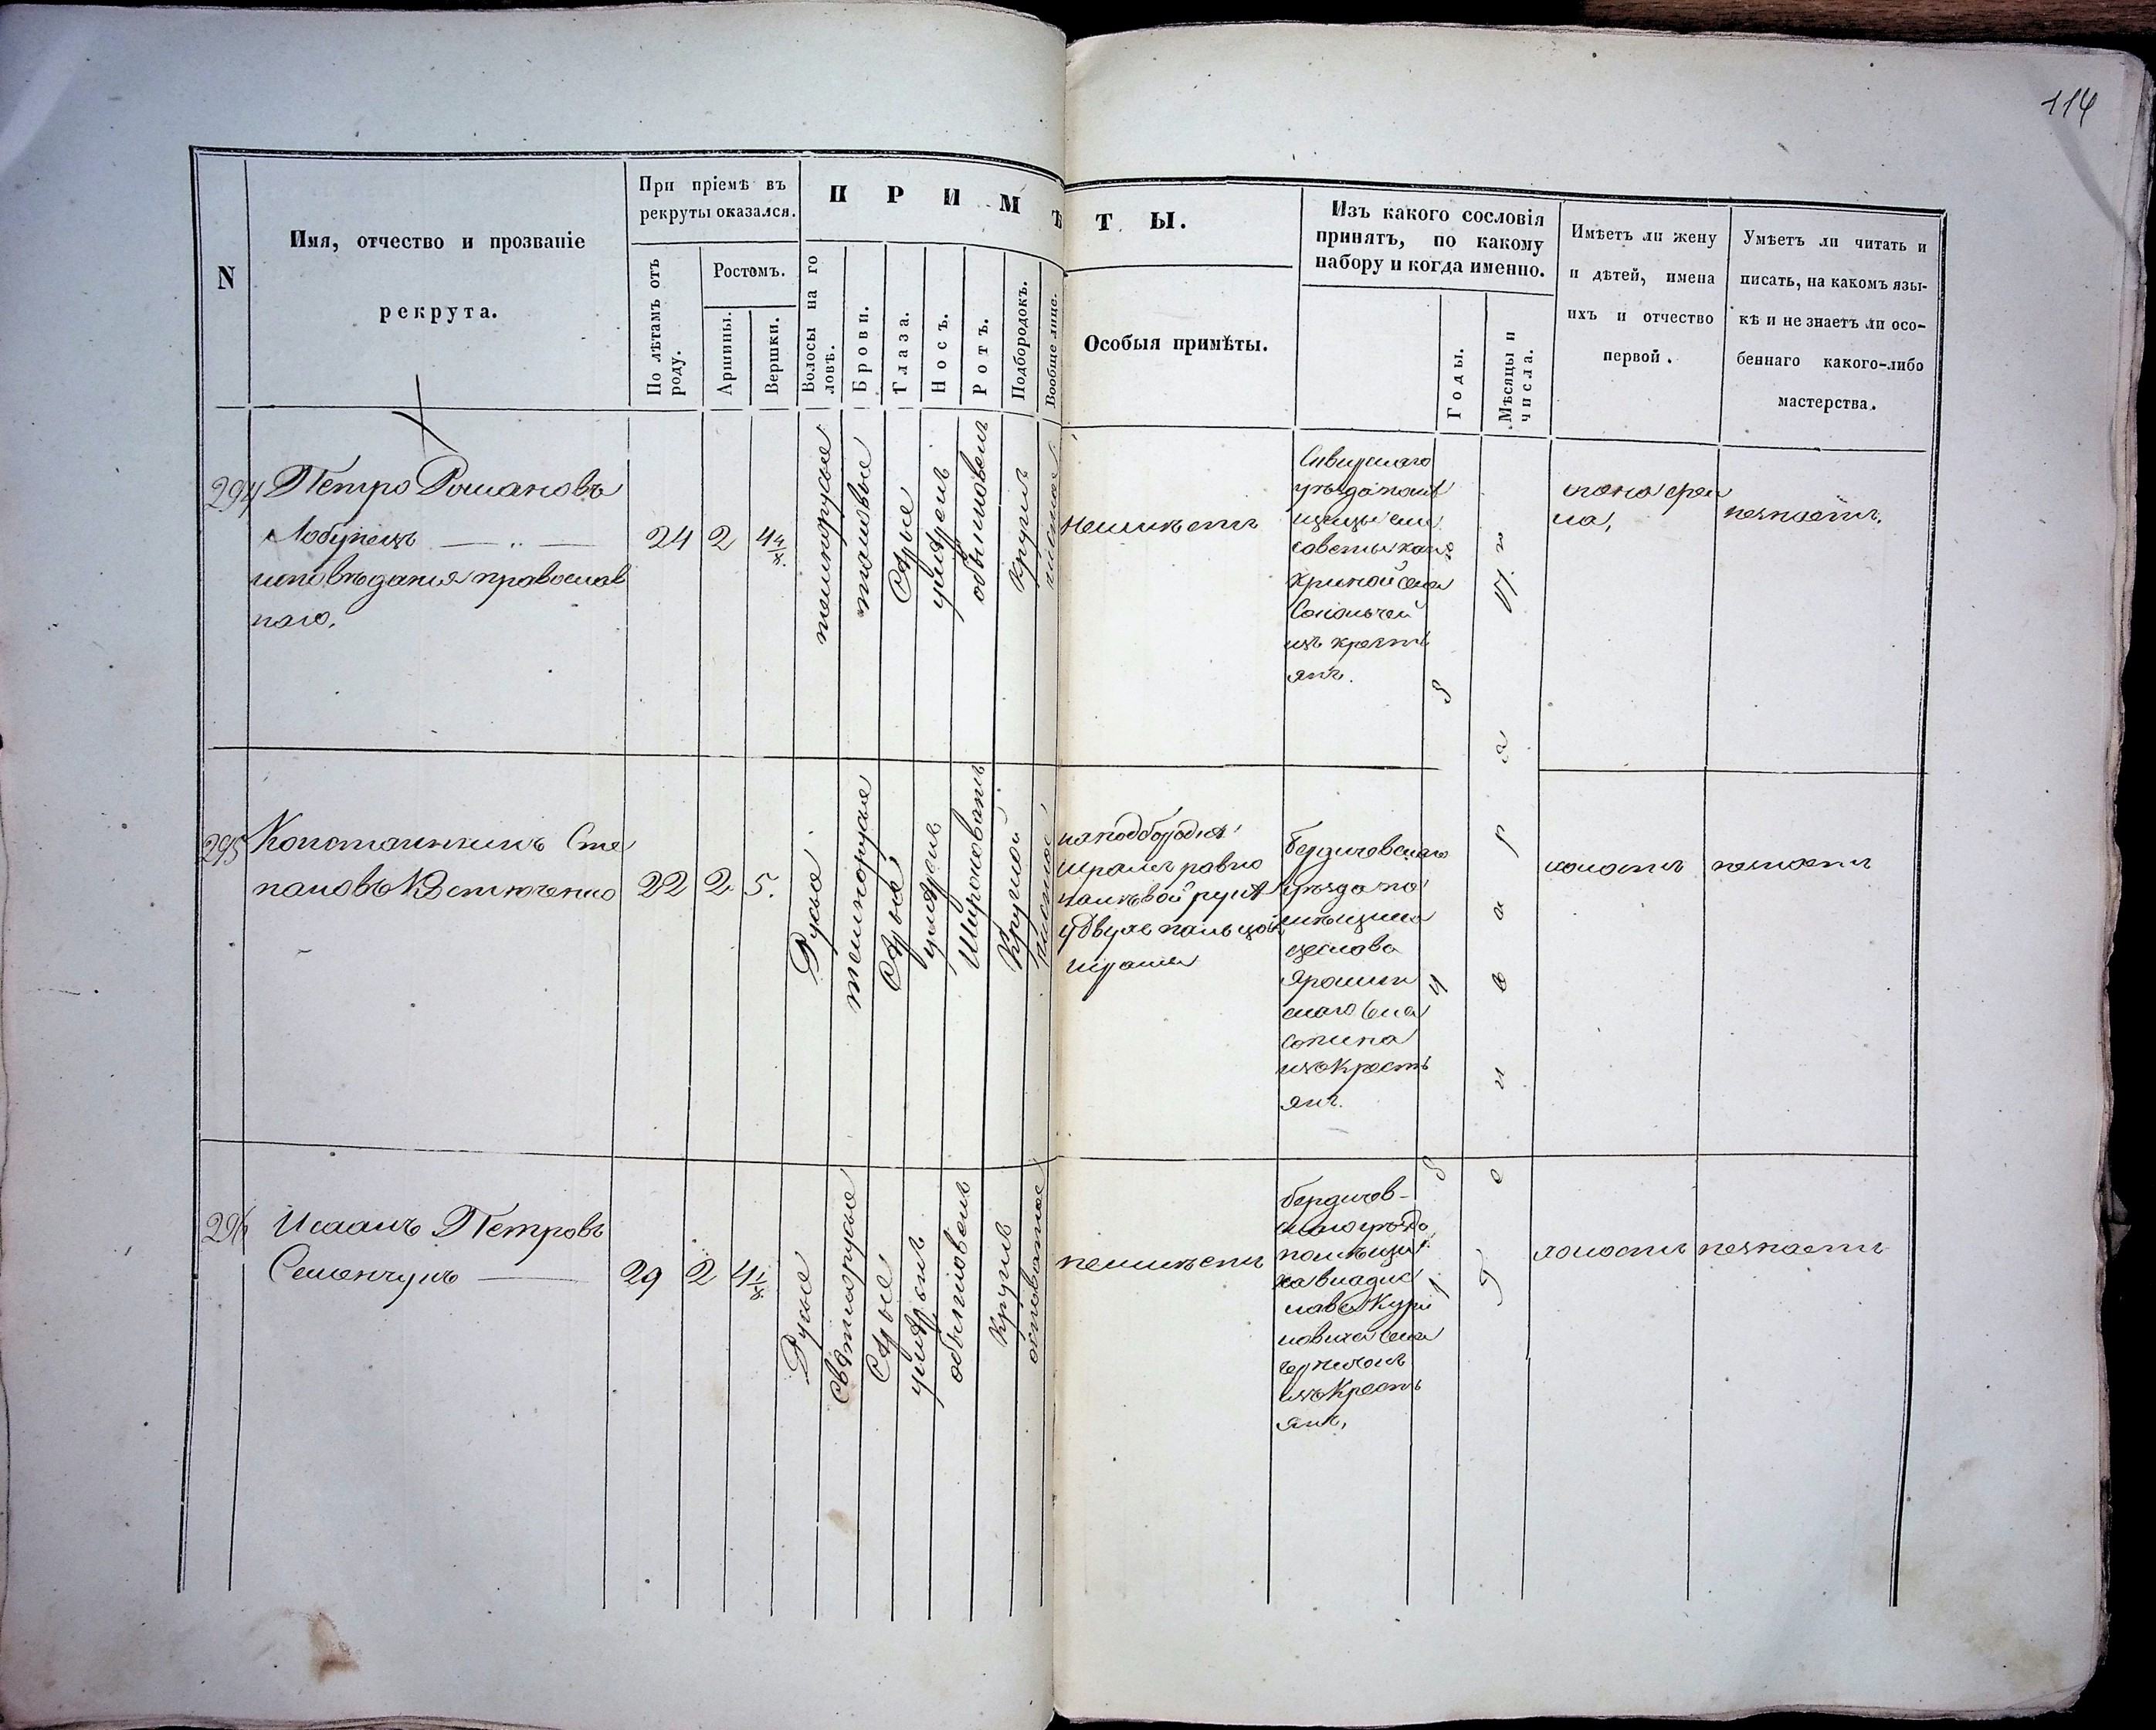 114
ПРИМѢТЫ.
N
Имя, отчество и прозваніе
рекрута.
При пріемѣ въ
рекруты оказался.
По лѣтамъ отъ
роду.
Ростомъ.
Аршины.
Вершки.
Волосы на го
ловѣ.
Брови.
Глаза.
Носъ.
Ротъ.
Подбородокъ.
Вообще лице.
Особыя примѣты.
Изъ какого сословія
принятъ, по какому
набору и когда именно.
Годы.
Мѣсяцы и
числа.
Имѣетъ ли жену
и дѣтей, имена
ихъ и отчество
первой.
Умѣетъ ли читать и
писать, на какомъ язы-
кѣ и не знаетъ ли осо-
беннаго какого-либо
мастерства.
294
Петро Романовъ
исповѣданія православ
наго.
24
2
4 4/8
темнорусые
таковые
Сѣрые
умѣренъ
обыкновенъ
Круглъ
чистое
неимѣетъ
Сквирскаго
уѣзда помѣ
щицы
изъ крестъ
янъ.
незнаетъ.
295
Константинъ Сте
пановъ
22
2
5.
Русые
темнорусые
Сѣрые
умѣренъ
Широковатъ
Круглой
чистое
на подбородкѣ
шрамъ равно
налѣвой рукѣ
удвухъ пальцовъ
шрамы
бердичевскаго
уѣзда по
мѣщика
села
изъ Крестъ
янъ.
холостъ
незнаетъ
296
Исаакъ Петровъ
Семенчукъ
29
2
4 1/8
Русые
Свѣтлорусые
Сѣрые
умѣренъ
обыкновенъ
Круглъ
неимѣетъ
бердичев-
скаго уѣзда
помѣщи
ка владис
лава
села
изъ Крестъ
янъ,
холостъ
незнаетъ